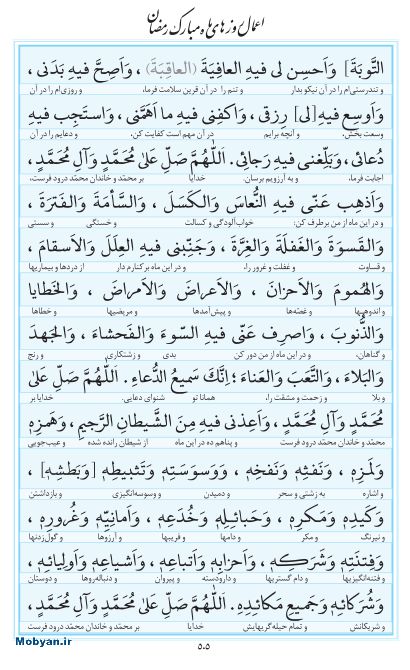 اعمال روزهای ماه مبارک رمضان
التَّوبَةَ] وَاَحسِن لی فیهِ العافِیَةَ (العاقِبَةَ) ، وَاَصِحَّ فیهِ بَدَنی ،
و تندرستی‌ام را در آن نیکو بدار و تنم را در آن قرین سلامت فرما، و روزی‌ام را در آن
وَاَوسِع فیهِ[لی] رِزقی ، وَاکفِنی فیهِ ما اَهَمَّنی ، وَاستَجِب فیهِ
وسعت بخش، و آنچه برایم در آن مهم است کفایت کن، و دعایم را در آن
دُعائی، وَبَلِّغنی فیهِ رَجائی. اَللّٰهُمَّ صَلِّ عَلیٰ مُحَمَّدٍ وَآلِ مُحَمَّدٍ،
اجابت فرما، و به آرزویم برسان. خدایا بر محمّد و خاندان محمّد درود فرست،
وَاَذهِب عَنّی فیهِ النُّعاسَ وَالکَسَلَ ، وَالسَّأمَةَ وَالفَترَةَ ،
و در این ماه از من برطرف کن: خواب‌آلودگی و کسالت و خستگی و سستی
وَالقَسوَةَ وَالغَفلَةَ وَالغِرَّةَ ، وَجَنِّبنی فیهِ العِلَلَ وَالاَسقامَ ،
و قساوت و غفلت و غرور را، و در این ماه برکنارم دار از دردها و بیماریها
وَالهُمومَ وَالاَحزانَ ، وَالاَعراضَ وَالاَمراضَ ، وَالخَطایا
و اندوهها و غصّه‌ها و پیش‌آمدها و مریضیها و خطاها
وَالذُّنوبَ ، وَاصرِف عَنّی فیهِ السّوءَ وَالفَحشاءَ ، وَالجَهدَ
و گناهان، و در این ماه از من دور کن بدی و زشتکاری و رنج
وَالبَلاءَ ، وَالتَّعَبَ وَالعَناءَ ؛ اِنَّکَ سَمیعُ الدُّعاءِ . اَللّٰهُمَّ صَلِّ عَلیٰ
و بلا و زحمت و مشقت را، همانا تو شنوای دعایی. خدایا بر
مُحَمَّدٍ وَآلِ مُحَمَّدٍ، وَاَعِذنی فیهِ مِنَ الشَّیطانِ الرَّجیمِ، وَهَمزِهٖ
محمّد و خاندان محمّد درود فرست و پناهم ده در این ماه از شیطان رانده شده و عیب‌جویی
وَلَمزِهٖ ، وَنَفثِهٖ وَنَفخِهٖ ، وَوَسوَسَتِهٖ وَتَثبیطِهٖ [وَبَطشِهٖ] ،
و اشاره به زشتی و سحر و دمیدن و وسوسه‌انگیزی و بازداشتن
وَکَیدِهٖ وَمَکرِهٖ ، وَحَبائِلِهٖ وَخُدَعِهٖ ، وَاَمانِیِّهٖ وَغُرورِهٖ ،
و نیرنگ و مکر و دامها و فریبها و آرزوها و گول‌زدنها
وَفِتنَتِهٖ وَشَرَکِهٖ ، وَاَحزابِهٖ وَاَتباعِهٖ ، وَاَشیاعِهٖ وَاَولِیائِهٖ ،
و فتنه‌انگیزیها و دام گستریها و دارودسته و پیروان و دنباله‌روها و دوستان
وَشُرَکائِهٖ وَجَمیعِ مَکائِدِهٖ. اَللّٰهُمَّ صَلِّ عَلیٰ مُحَمَّدٍ وَآلِ مُحَمَّدٍ،
و شریکانش و تمام حیله گریهایش خدایا بر محمّد و خاندان محمّد درود فرست
۵۰۵
Mobyan.ir